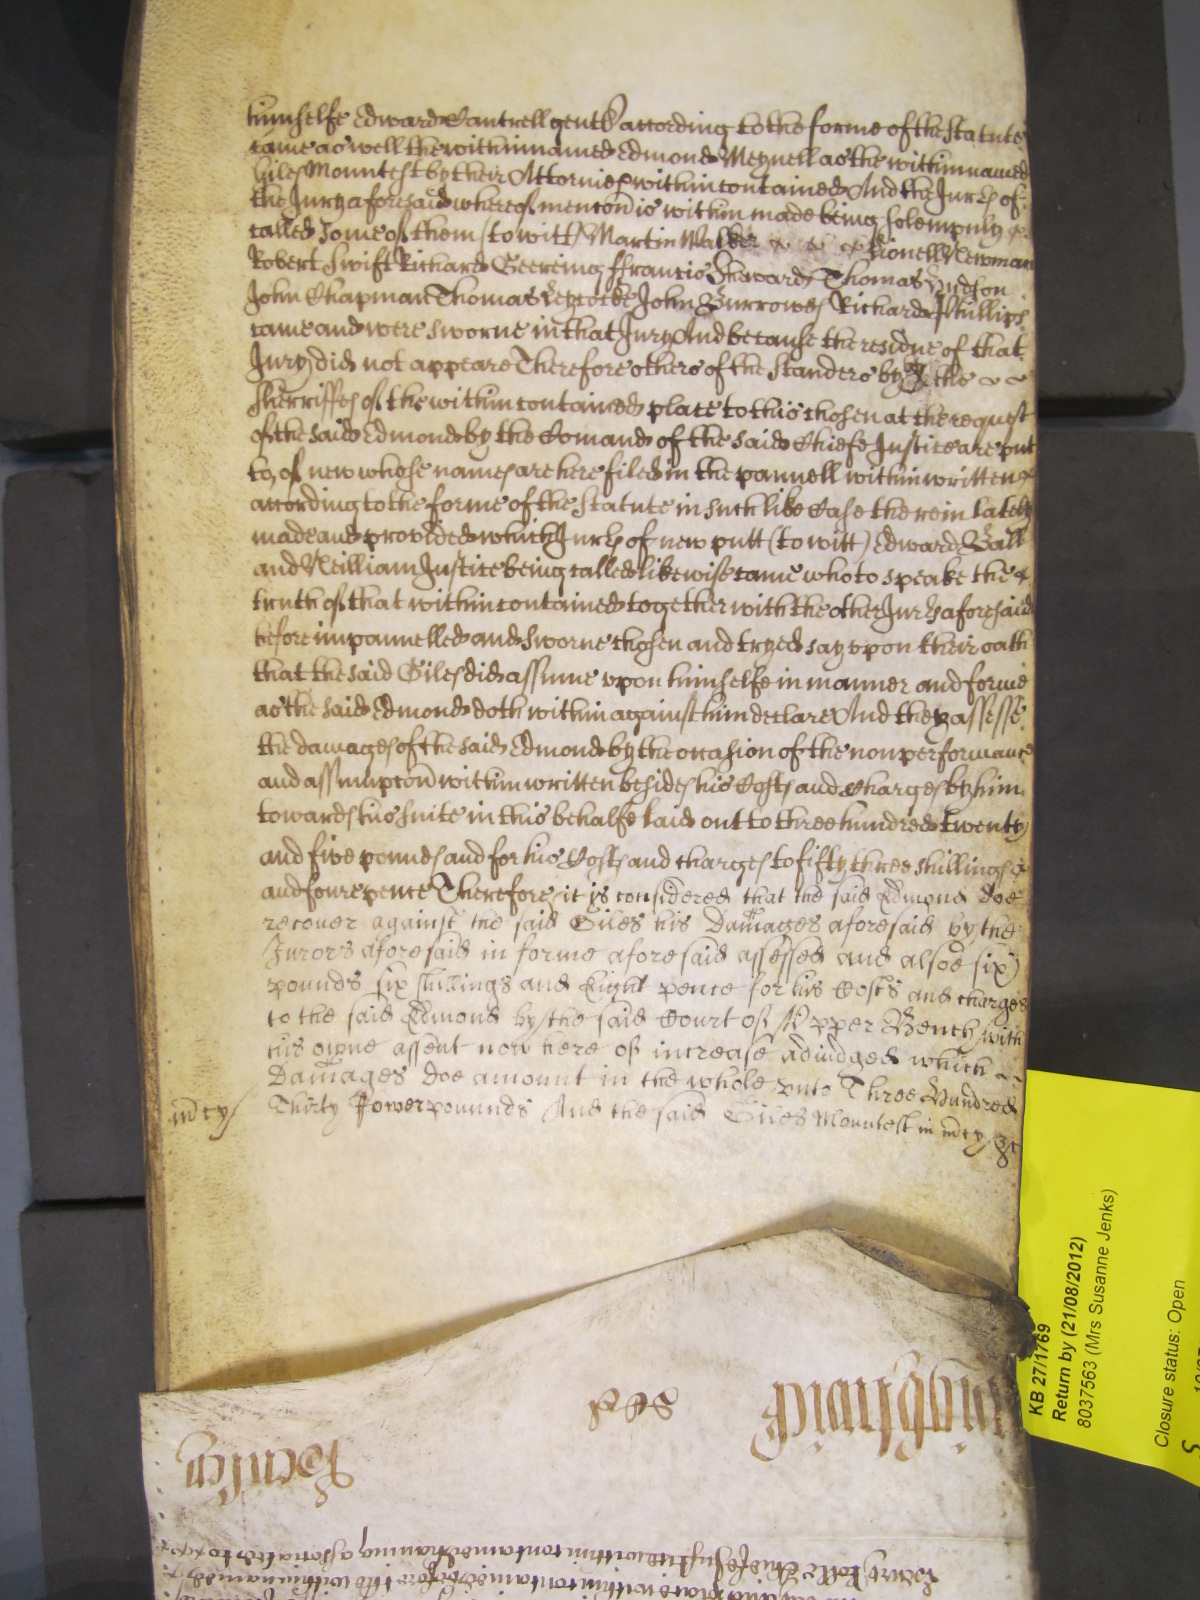 himselfe Edward Cantrell gentl according to the forme of the Statute
came as well the withinnamed Edmond Meynell as the withinnamed
Giles Mountest by their Attornies within contained And the Jurors of
the Jury aforesaid whereof mencon is within made being solempnly
called some of them (to witt) Martin Walker Lionell Newman
Robert Swift Richard Geereing ffrancis Sheward Thomas Hudson
John Chapman Thomas Leycocke John Burrowes Richard Phillips
came and were sworne in that Jury And because the residue of that
Jury did not appeare Therefore others of the Standers by the
Sherriffes of the within contained place to this chosen at the request
of the said Edmond by the Comand of the said Chiefe Justice are put
to of new whose names are here filed in the pannell within written
according to the forme of the Statute in such like Case therein lately
made and provided which Jurors of new putt (to witt) Edward Ball
and William Justice being called likewise came who to speake the
truth of that within contained together with the other Jurors aforesaid
before impannelled and sworne chosen and tryed say upon their oath
that the said Giles did assume upon himselfe in manner and forme
as the said Edmond doth within against him declare And they assesse
the damages of the said Edmond by the occasion of the nonperformance
and assumpcon within written besides his Costs and Charges by him
towards his suite in this behalfe laid out to three hundred twenty
and five pounds and for his Costs and charges to fifty three shillings
and foure pence Therefore it is considered that the said Edmond doe
recouer against the said Giles his Damages aforesaid by the
Jurors aforesaid in forme aforesaid assessed and alsoe six
pounds six shillings and Eight pence for his Costs and charges
to the said Edmond by the said Court of Vpper Bench with
his owne assent now here of increase adiudged which
Damages doe amount in the whole vnto Three Hundred
Thirty ffower pounds And the said Giles Mountest in mcy &c
mcy
KB 27/1769
Return by (21/08/2012)
8037563 (Mrs Susanne Jenks)
Closure status: Open